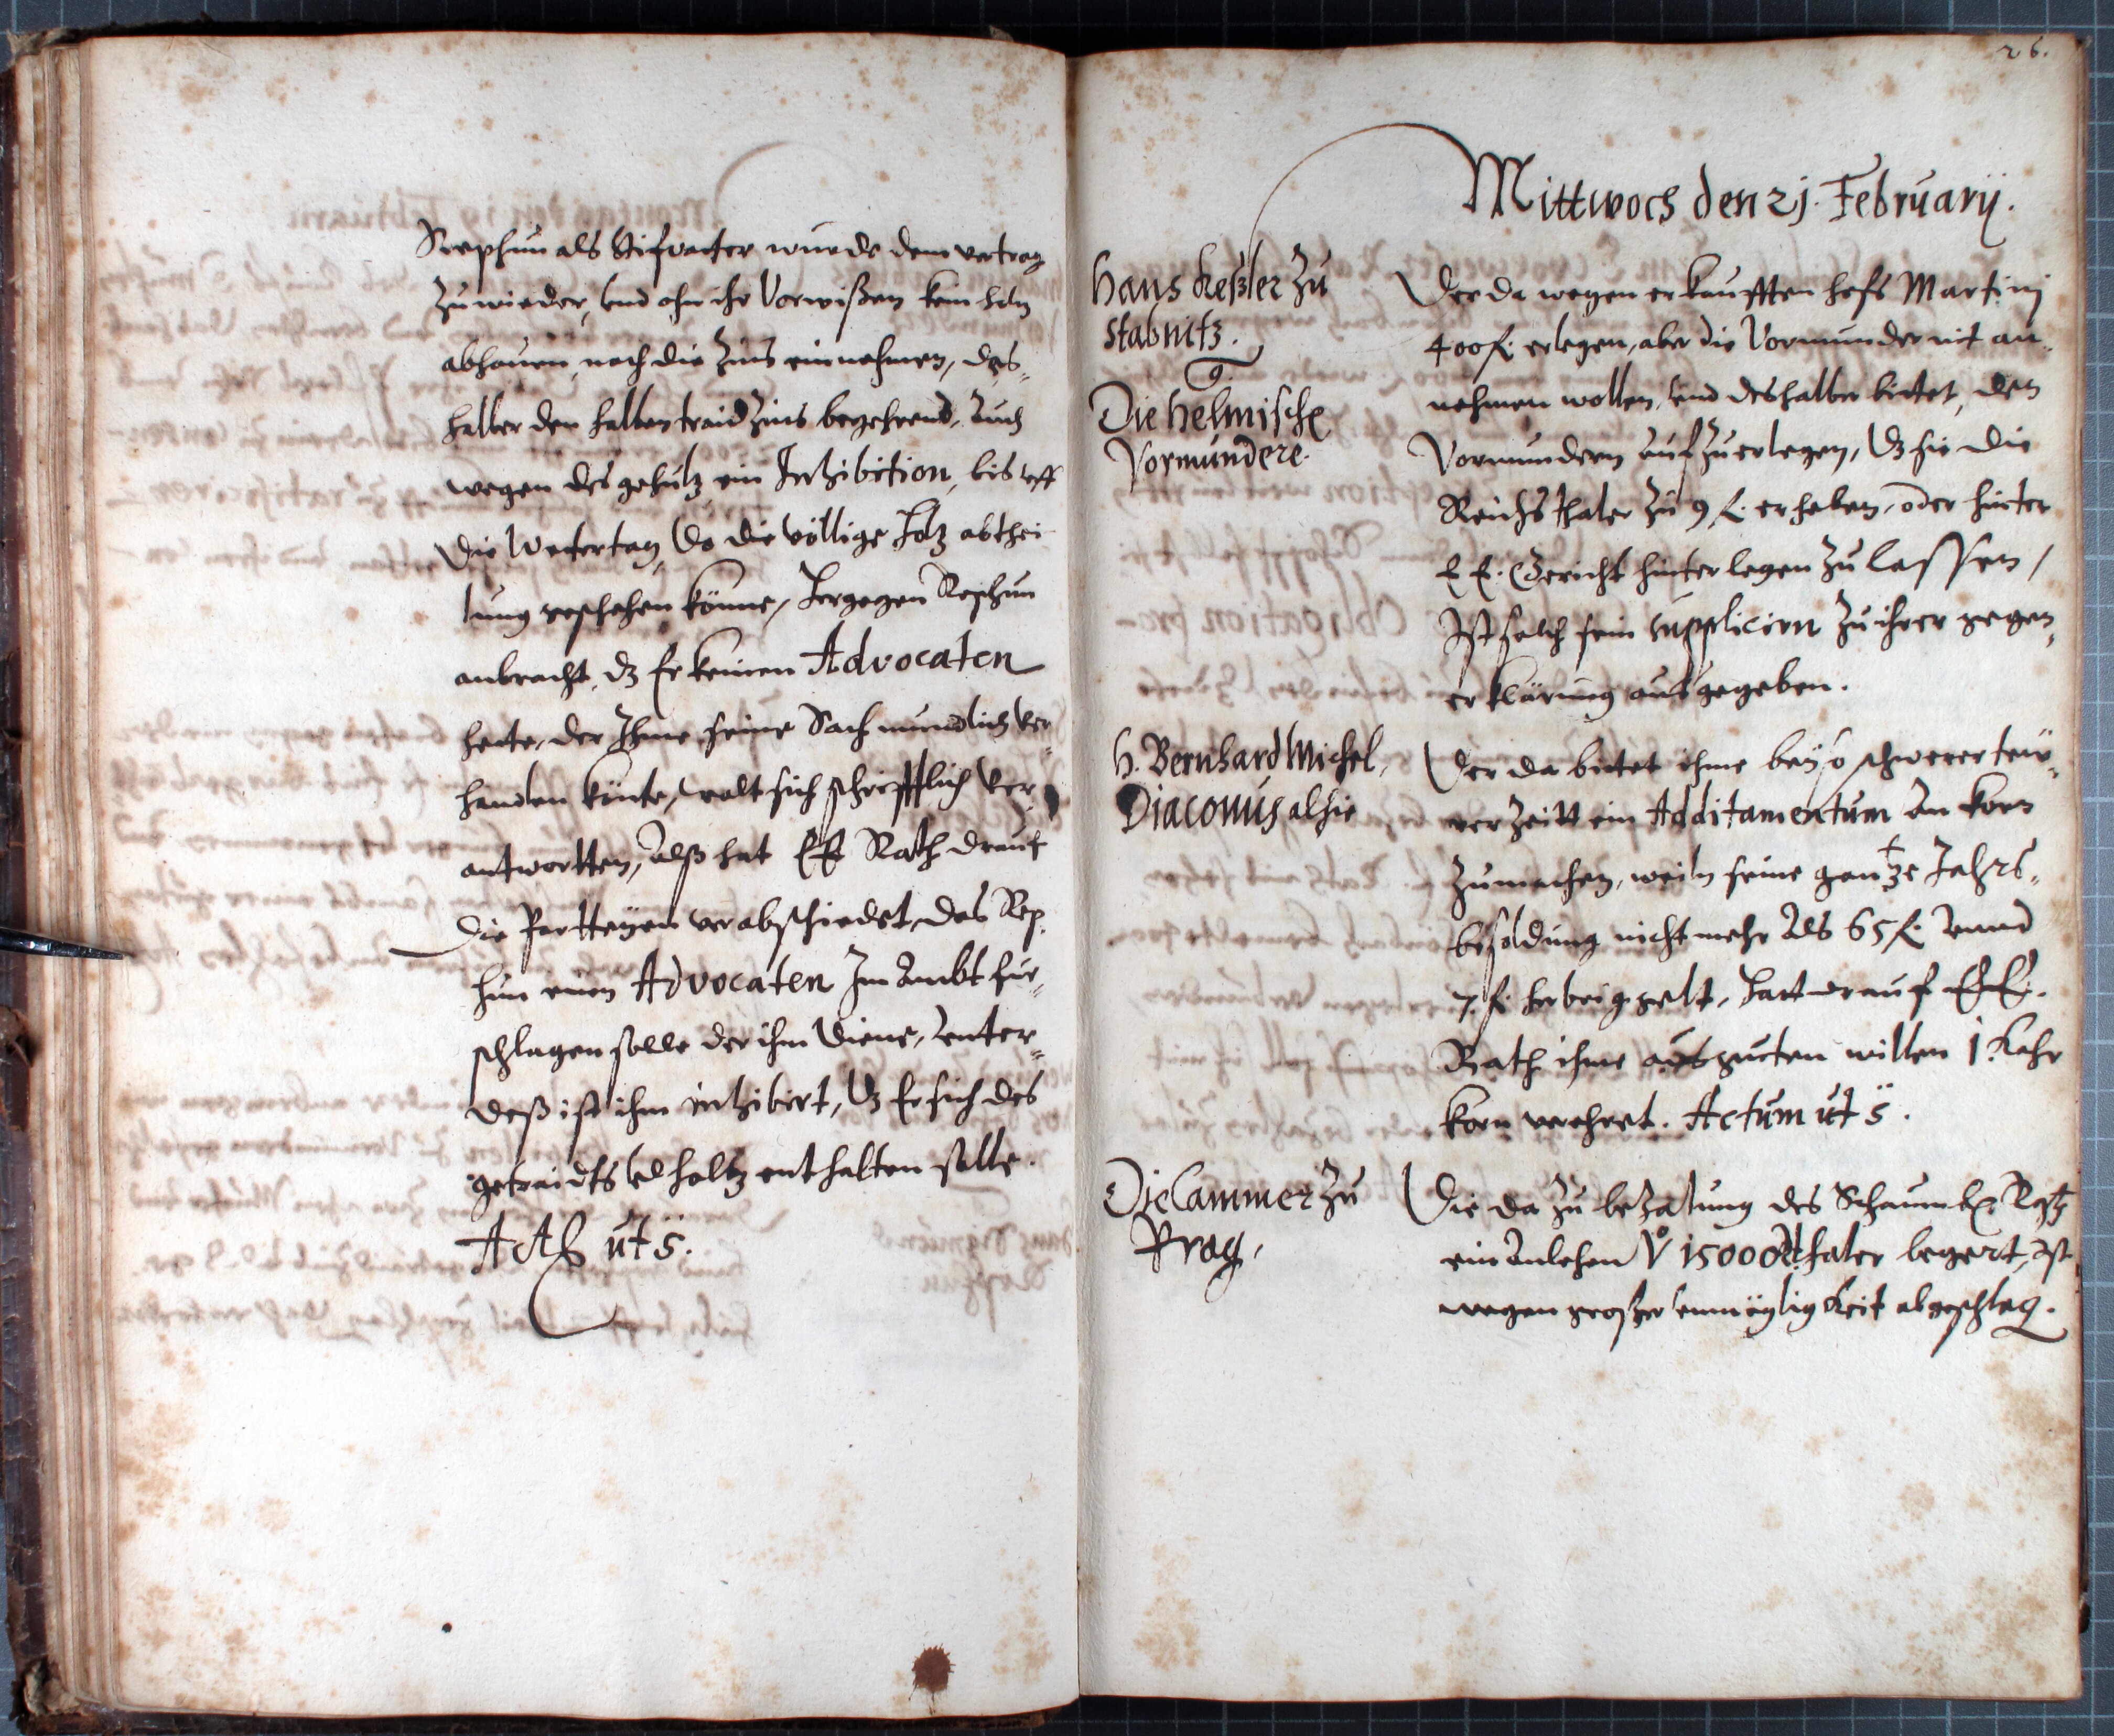 Rephun als Stifvatter wurde dem vertrag
zu wieder, und ohn ihr Vorwißen kein holz
abhauen, noch die Zins einnehmen, des-
halber den halben traidzins begehrend, Auch
wegen des gehulz ein Inhibition, bis uff
die Wetertag, do die völlige Holz abthei
lung geschehen könne, Hergegen Rephun
anbracht, dz Er keinen Advocaten
hette, der Ihme seine Sach mundlich ver-
handlen könte, wolt sich schrifftlich ver-
antwortten, Alß hat EE Rath drauf
die Partteyen verabschiedet, das Rep-
hun einen Advocaten Im Ambt für-
schlagen solle der ihm diene, Unter-
deß ist ihm inhibirt, dz Er sich des
getraidts und holtz enthalten solle.
Actum ut s.
26.
Mittwochs den 21. Februarii.
Hans Keßler zu
Stabnitz.
Die Helmische
Vormundere.
Der da wegen erkaufften hofs Martinj
400 fl. erlegen, aber die Vormunder nit an-
nehmen wollen, und deshalber bittet, den
Vormundern aufzuerlegen, dz sie die
Reichsthaler zu 9 fl. erheben, oder hinter
E E. Gericht hinterlegen zu lassen,
Ist solch sein supplicirn zu ihrer gegen-
erklärung ausgegeben.
H. Bernhard Michel,
Diaconus alhie
Der da bittet ihme bey so schwerer teu-
rer Zeitt ein Additamentum an Korn
zumachen, weiln seine gantze Jahrs-
besoldung nicht mehr Als 65 fl. unnd
7. fl. herbriggelt, Hatt drauf EE.
Rath ihme aus guten willen 1. Kahr
Korn verehret. Actum ut s.
Die Cammer zu
Prag,
Die da zu bezalung des Schaumb. Rests
ein Anlehen v 15000 Rthaler begert, Ist
wegen großer unmögligkeit abgeschlag.